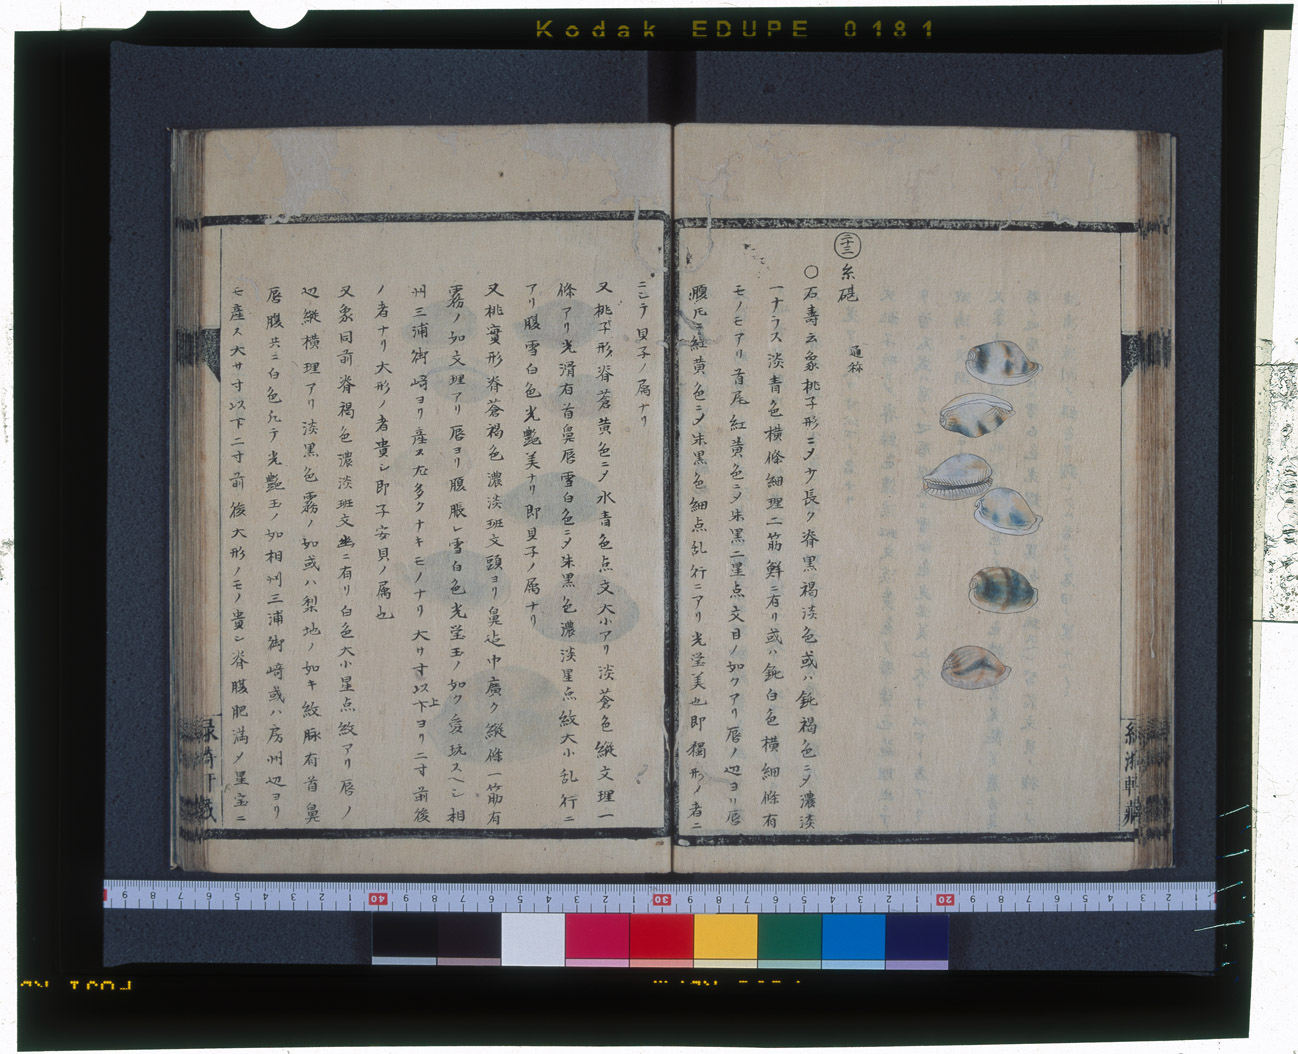 Kodak EDUPE 0181
二十三 糸碪 通称
〇石壽云象桃子形ニメ少長ク脊黒褐淡色或ハ鈍褐色ニメ濃淡
一ナラス淡青色横條細理二筋鮮ニ有リ或ハ鈍白色横細條有
モノモアリ首尾紅黄色ニメ朱黒二星点文目ノ如クアリ唇ノ辺ヨリ唇
腹凡ニ紅黄色ニメ朱黒色細点乱行ニアリ光莹美也即獨形ノ者ニ
ニシテ貝子ノ属ナリ
又桃子形脊蒼黄色ニメ水青色点文大小アリ淡蒼色縦文理一
條アリ光滑有首鼻唇雪白色ニメ朱黒色濃淡星点紋大小乱行ニ
アリ腹雪白色光艶美ナリ即貝子ノ属ナリ
又桃實形脊蒼褐色濃淡班文頭ヨリ鼻迠中廣ク縦條一筋有
霧ノ如文理アリ唇ヨリ腹脹レ雪白色光莹玉ノ如ク愛玩スヘシ相
州三浦御﨑ヨリ産ス尤多クナキモノナリ大サ寸以上下ヨリ二寸前後
ノ者ナリ大形ノ者貴シ即子安貝ノ属也
又象同前脊褐色濃淡班文幽ニ有リ白色大小星点紋アリ唇ノ
辺縦横理アリ淡黒色霧ノ如或ハ梨地ノ如キ紋脉有首鼻
唇腹共ニ白色ニテ光艶玉ノ如相州三浦御﨑或ハ房州辺ヨリ
モ産ス大サ寸以下二寸前後大形ノモノ貴シ脊腹肥満メ星宝ニ